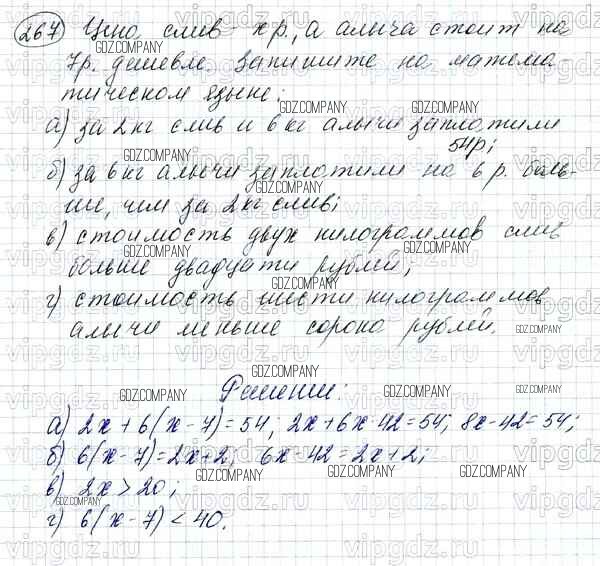 267 Цена слив - x р., а алыча стоит на
7р. дешевле. Запишите на матема-
тическом языке:
а) за 2 кг слив и 6 кг алычи заплатили
54р;
б) за 6 кг алычи заплатили на 6 р. боль-
ше, чем за 2 кг слив;
в) стоимость двух килограммов слив
больше двадцати рублей;
г) стоимость шести килограммов
алычи меньше сорока рублей.
Решение:
а) 2x + 6(x - 7) = 54; 2x + 6x - 42 = 54; 8x - 42 = 54;
б) 6(x - 7) = 2x + 2; 6x - 42 = 2x + 2;
в) 2x > 20;
г) 6(x - 7) < 40.